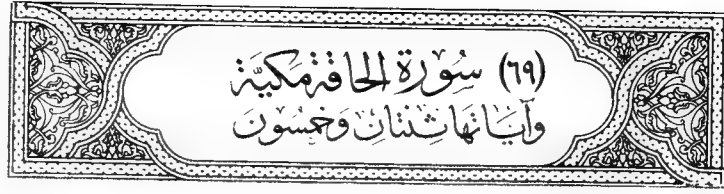 (٦٩) سُورَة الحَاقَة مَكِيَّة
وَآيَاتهَا ثِنْتَان وَخَمْسُون